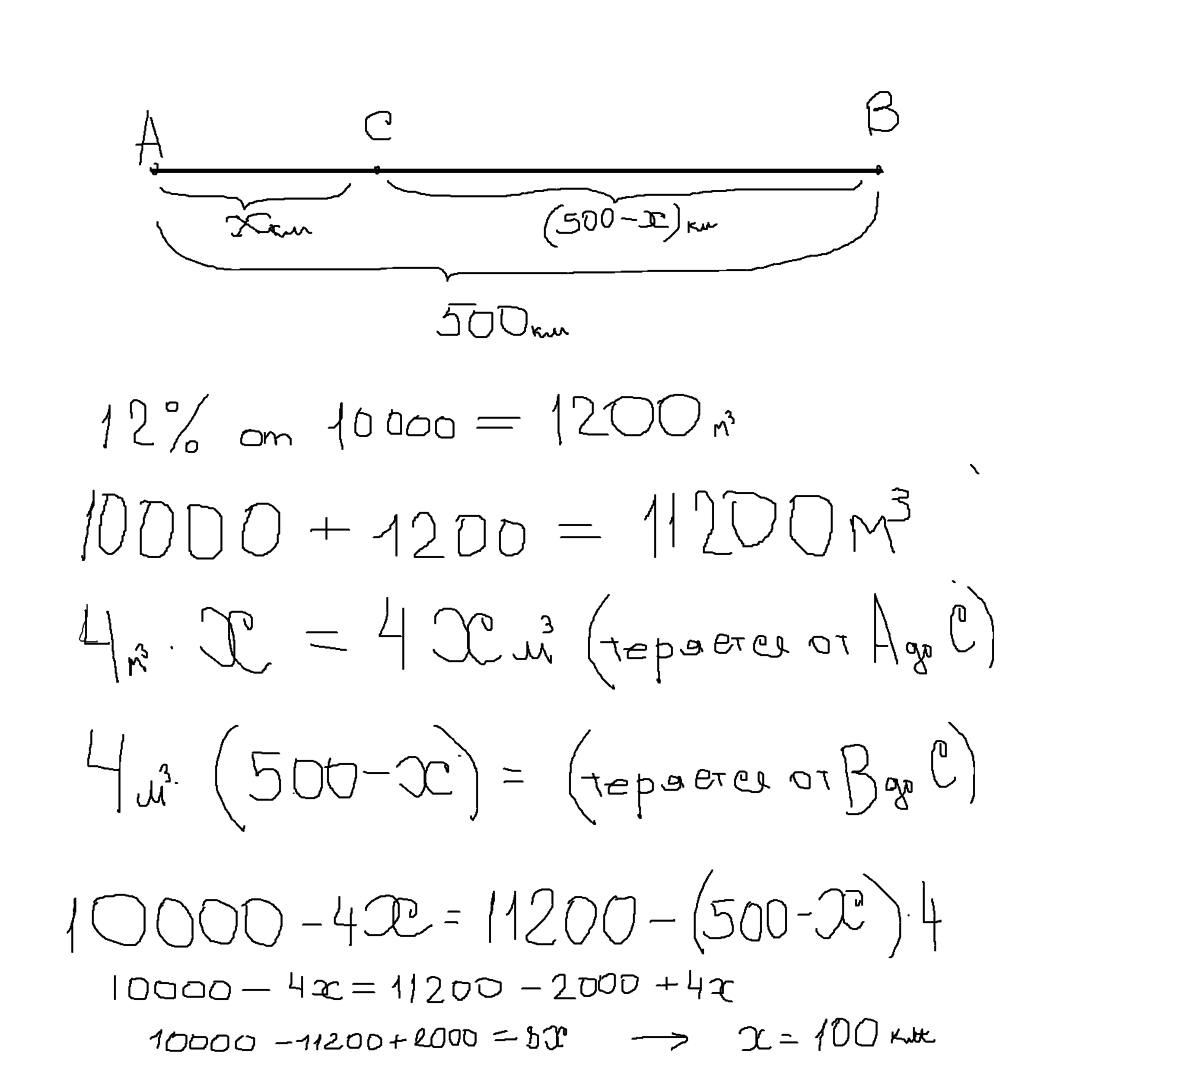 A C B
x км (500-x) км
500 км
12% от 10000 = 1200 м³
10000 + 1200 = 11200 м³
4 м³ · x = 4x м³ (теряется от A до C)
4 м³ · (500-x) = (теряется от B до C)
10000 - 4x = 11200 - (500-x) · 4
10000 - 4x = 11200 - 2000 + 4x
10000 - 11200 + 2000 = 8x → x = 100 км